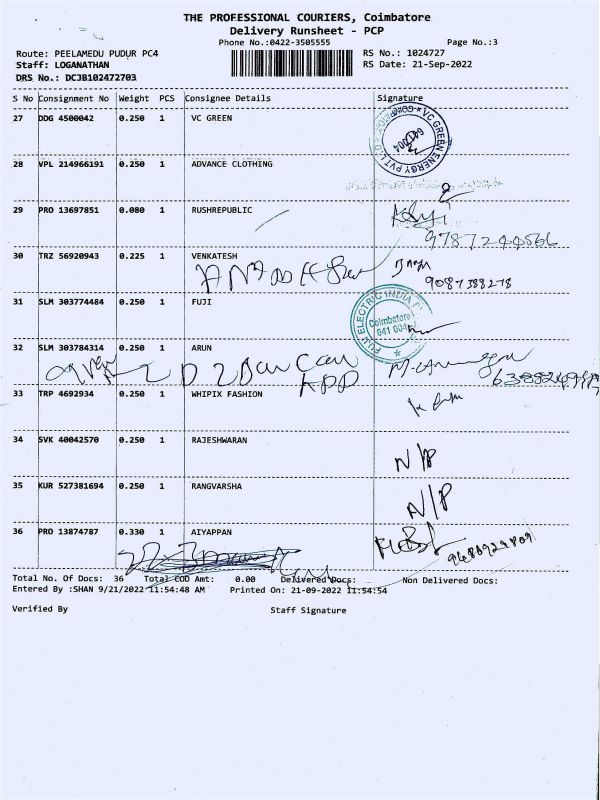 THE PROFESSIONAL COURIERS, Coimbatore
Delivery Runsheet - PCP
Phone No.:0422-3505555
Page No.:3
Route: PEELAMEDU PUDUR PC4
RS No.: 1024727
Staff: LOGANATHAN
RS Date: 21-Sep-2022
DRS No.: DCJB102472703
S No Consignment No Weight PCS Consignee Details Signature
27 DDG 4500042 0.250 1 VC GREEN
VC GREEN ENERGY PVT LTD
28 VPL 214966191 0.250 1 ADVANCE CLOTHING
29 PRO 13697851 0.080 1 RUSHREPUBLIC
9787244566
30 TRZ 56920943 0.225 1 VENKATESH
9087388278
31 SLM 303774484 0.250 1 FUJI
FUJI ELECTRIC INDIA
Coimbatore
641 004
32 SLM 303784314 0.250 1 ARUN
33 TRP 4692934 0.250 1 WHIPIX FASHION
34 SVK 40042570 0.250 1 RAJESHWARAN
N/P
35 KUR 527381694 0.250 1 RANGVARSHA
N/P
36 PRO 13874787 0.330 1 AIYAPPAN
Total No. Of Docs: 36 Total COD Amt: 0.00 Delivered Docs: Non Delivered Docs:
Entered By :SHAN 9/21/2022 11:54:48 AM Printed On: 21-09-2022 11:54:54
Verified By Staff Signature